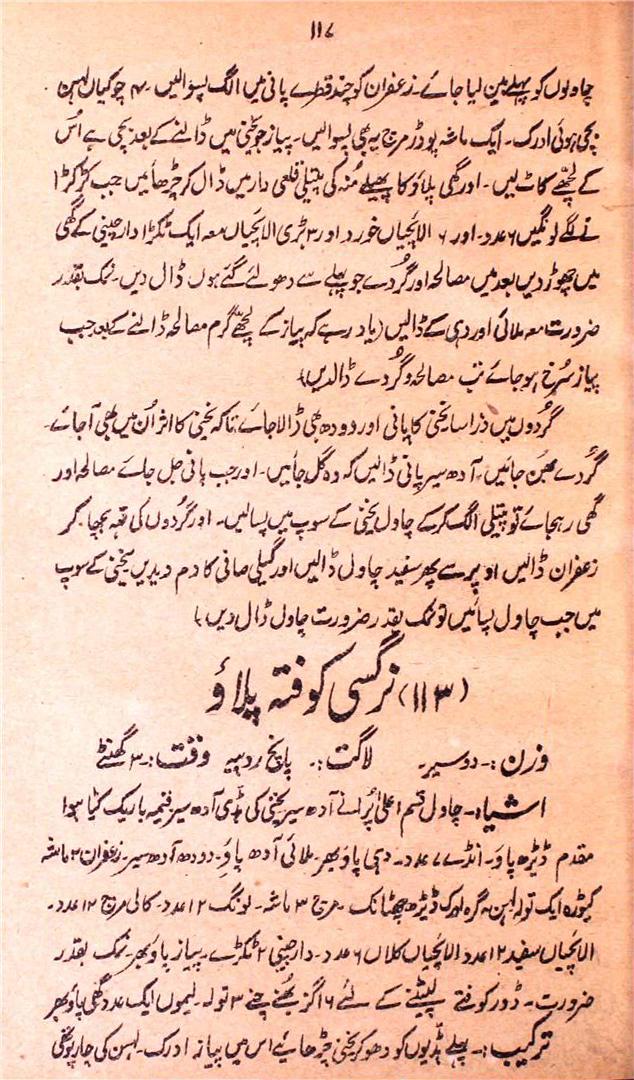 ۱۱۷
چاولوں کو پہلے بین لیا جائے۔ زعفران کو چند قطرے پانی میں الگ پسوالیں۔ ۴ جو گیاں لہسن
بچی ہوئی ادرک۔ ایک ماشہ پوڈر مرچ یہ بھی پسوالیں۔ پیاز جو یخنی میں ڈالنے کے بعد بچی ہے اُس
کے لچھّے کاٹ لیں۔ اور گھی پلاؤ کا پھیلے مُنہ کی پتیلی قلعی دار میں ڈال کر چڑھائیں جب کڑکڑا
نے لگے لونگیں ۶ عدد۔ اور ۶ الائچیاں خورد اور ۳ بڑی الائچیاں معہ ایک ٹکڑا دارچینی کے گھی
میں چھوڑ دیں بعد میں مصالحہ اور گُردے جو پہلے سے دھولئے گئے ہوں ڈال دیں۔ نمک بقدر
ضرورت معہ ملائی اور دہی کے ڈالیں (یاد رہے کہ پیاز کے لچھّے گرم مصالحہ ڈالنے کے بعد جب
پیاز سُرخ ہو جائے تب مصالحہ و گُردے ڈالدیں)
گُردوں میں ذراسا یخنی کا پانی اور دودھ بھی ڈالا جائے تاکہ یخنی کا اثر اُن میں بھی آجائے۔
گُردے بھُن جائیں۔ آدھ سیر پانی ڈالیں کہ وہ گل جائیں۔ اور جب پانی جل جائے مصالحہ اور
گھی رہجائے تو پتیلی الگ کرکے چاول یخنی کے سوپ میں پسالیں۔ اور گردوں کی تہہ بچھا کر
زعفران ڈالیں اوپر سے پھر سفید چاول ڈالیں اور گیلی صافی کا دم دیدیں یخنی کے سوپ
میں جب چاول پسائیں تو نمک بقدر ضرورت چاول ڈال دیں)
(۱۱۳) نرگسی کوفتہ پلاؤ
وزن:۔ دو سیر۔ لاگت:۔ پانچ روپیہ وقت:۔ ۳ گھنٹے
اشیاء۔ چاول قسم اعلیٰ پُرانے آدھ سیر یخنی کی ہڈی آدھ سیر قیمہ باریک کٹا ہوا
مقدم ڈیڑھ پاؤ۔ انڈے ۷ عدد۔ دہی پاؤ بھر۔ ملائی آدھ پاؤ۔ دودھ آدھ سیر۔ زعفران ۳ ماشہ
کیوڑہ ایک تولہ لہسن گرہ ادرک ڈیڑھ چھٹانک۔ مرچ ۳ ماشہ۔ لونگ ۱۲ عدد۔ کالی مرچ ۱۲ عدد۔
الائچیاں سفید ۱۲ عدد الائچیاں کلاں ۶ عدد۔ دارچینی ۲ ٹکڑے۔ پیاز پاؤ بھر۔ نمک بقدر
ضرورت۔ ڈور کوفتے لپیٹنے کے لئے ۱۶ گز بھُنے چنے ۳ تولہ۔ لیموں ایک عدد گھی پاؤ بھر
ترکیب:۔ پہلے ہڈیوں کو دھو کر یخنی چڑھائیے اس میں پیاز ادرک۔ لہسن کی چار پوتھی